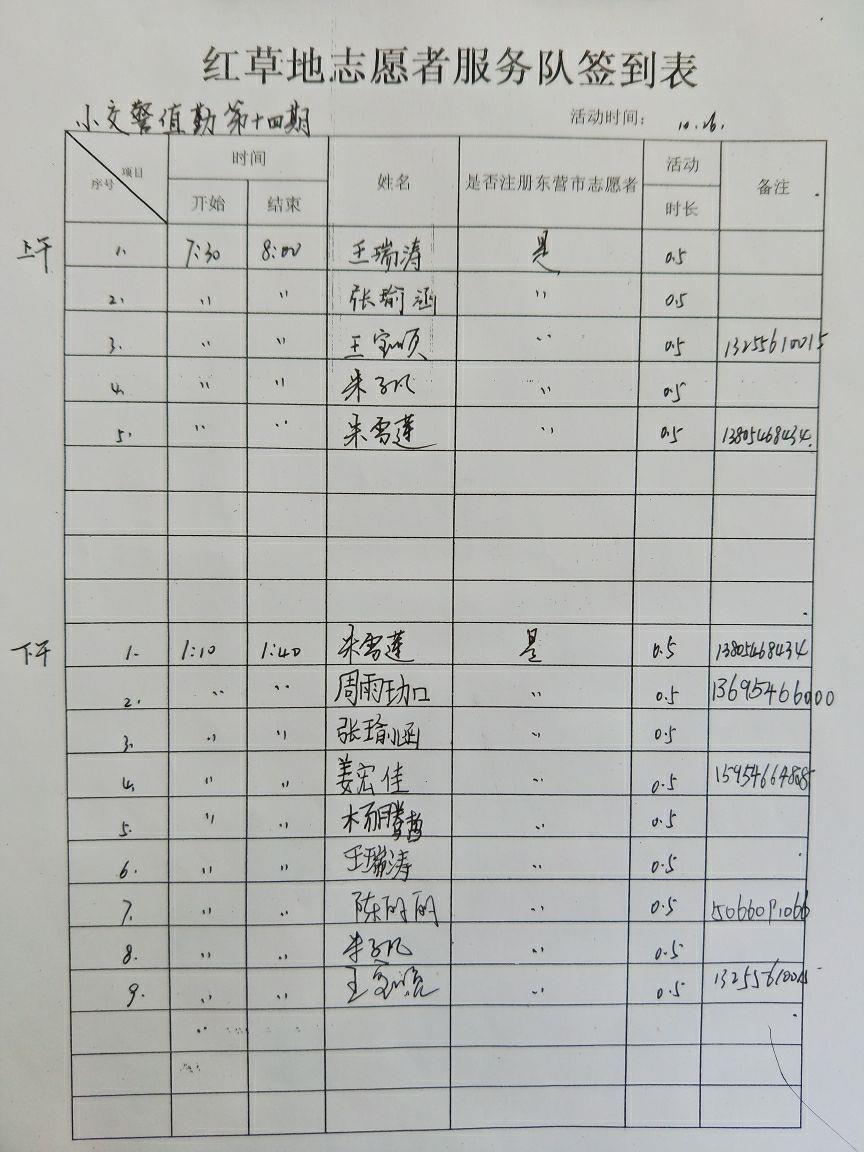 红草地志愿者服务队签到表
小交警值勤第十四期 活动时间: 10.26.
项目 序号 时间 姓名 是否注册东营市志愿者 活动 备注
开始 结束 时长
上午 1. 7:30 8:00 王瑞涛 是 0.5
2. 〃 〃 张瑜涵 〃 0.5
3. 〃 〃 王宝顺 〃 0.5 13255610015
4. 〃 〃 朱子凡 〃 0.5
5. 〃 〃 朱雪莲 〃 0.5 13805468434.
下午 1. 1:10 1:40 朱雪莲 是 0.5 13805468434
2. 〃 〃 周雨 〃 0.5 13695466000
3. 〃 〃 张瑜涵 〃 0.5
4. 〃 〃 姜宏佳 〃 0.5
5. 〃 〃 杨腾 〃 0.5
6. 〃 〃 王瑞涛 〃 0.5
7. 〃 〃 陈 〃 0.5
8. 〃 〃 朱子凡 〃 0.5
9. 〃 〃 王宝顺 〃 0.5 13255610015